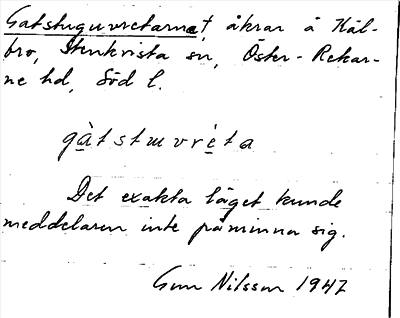 Gatstuguvretarna†, åkrar å Käl-
bro, Stenkvista sn, Öster-Rekar-
ne hd, Söd l.
gàtstuvrèta
Det exakta läget kunde
meddelaren inte påminna sig.
Gun Nilsson 1947